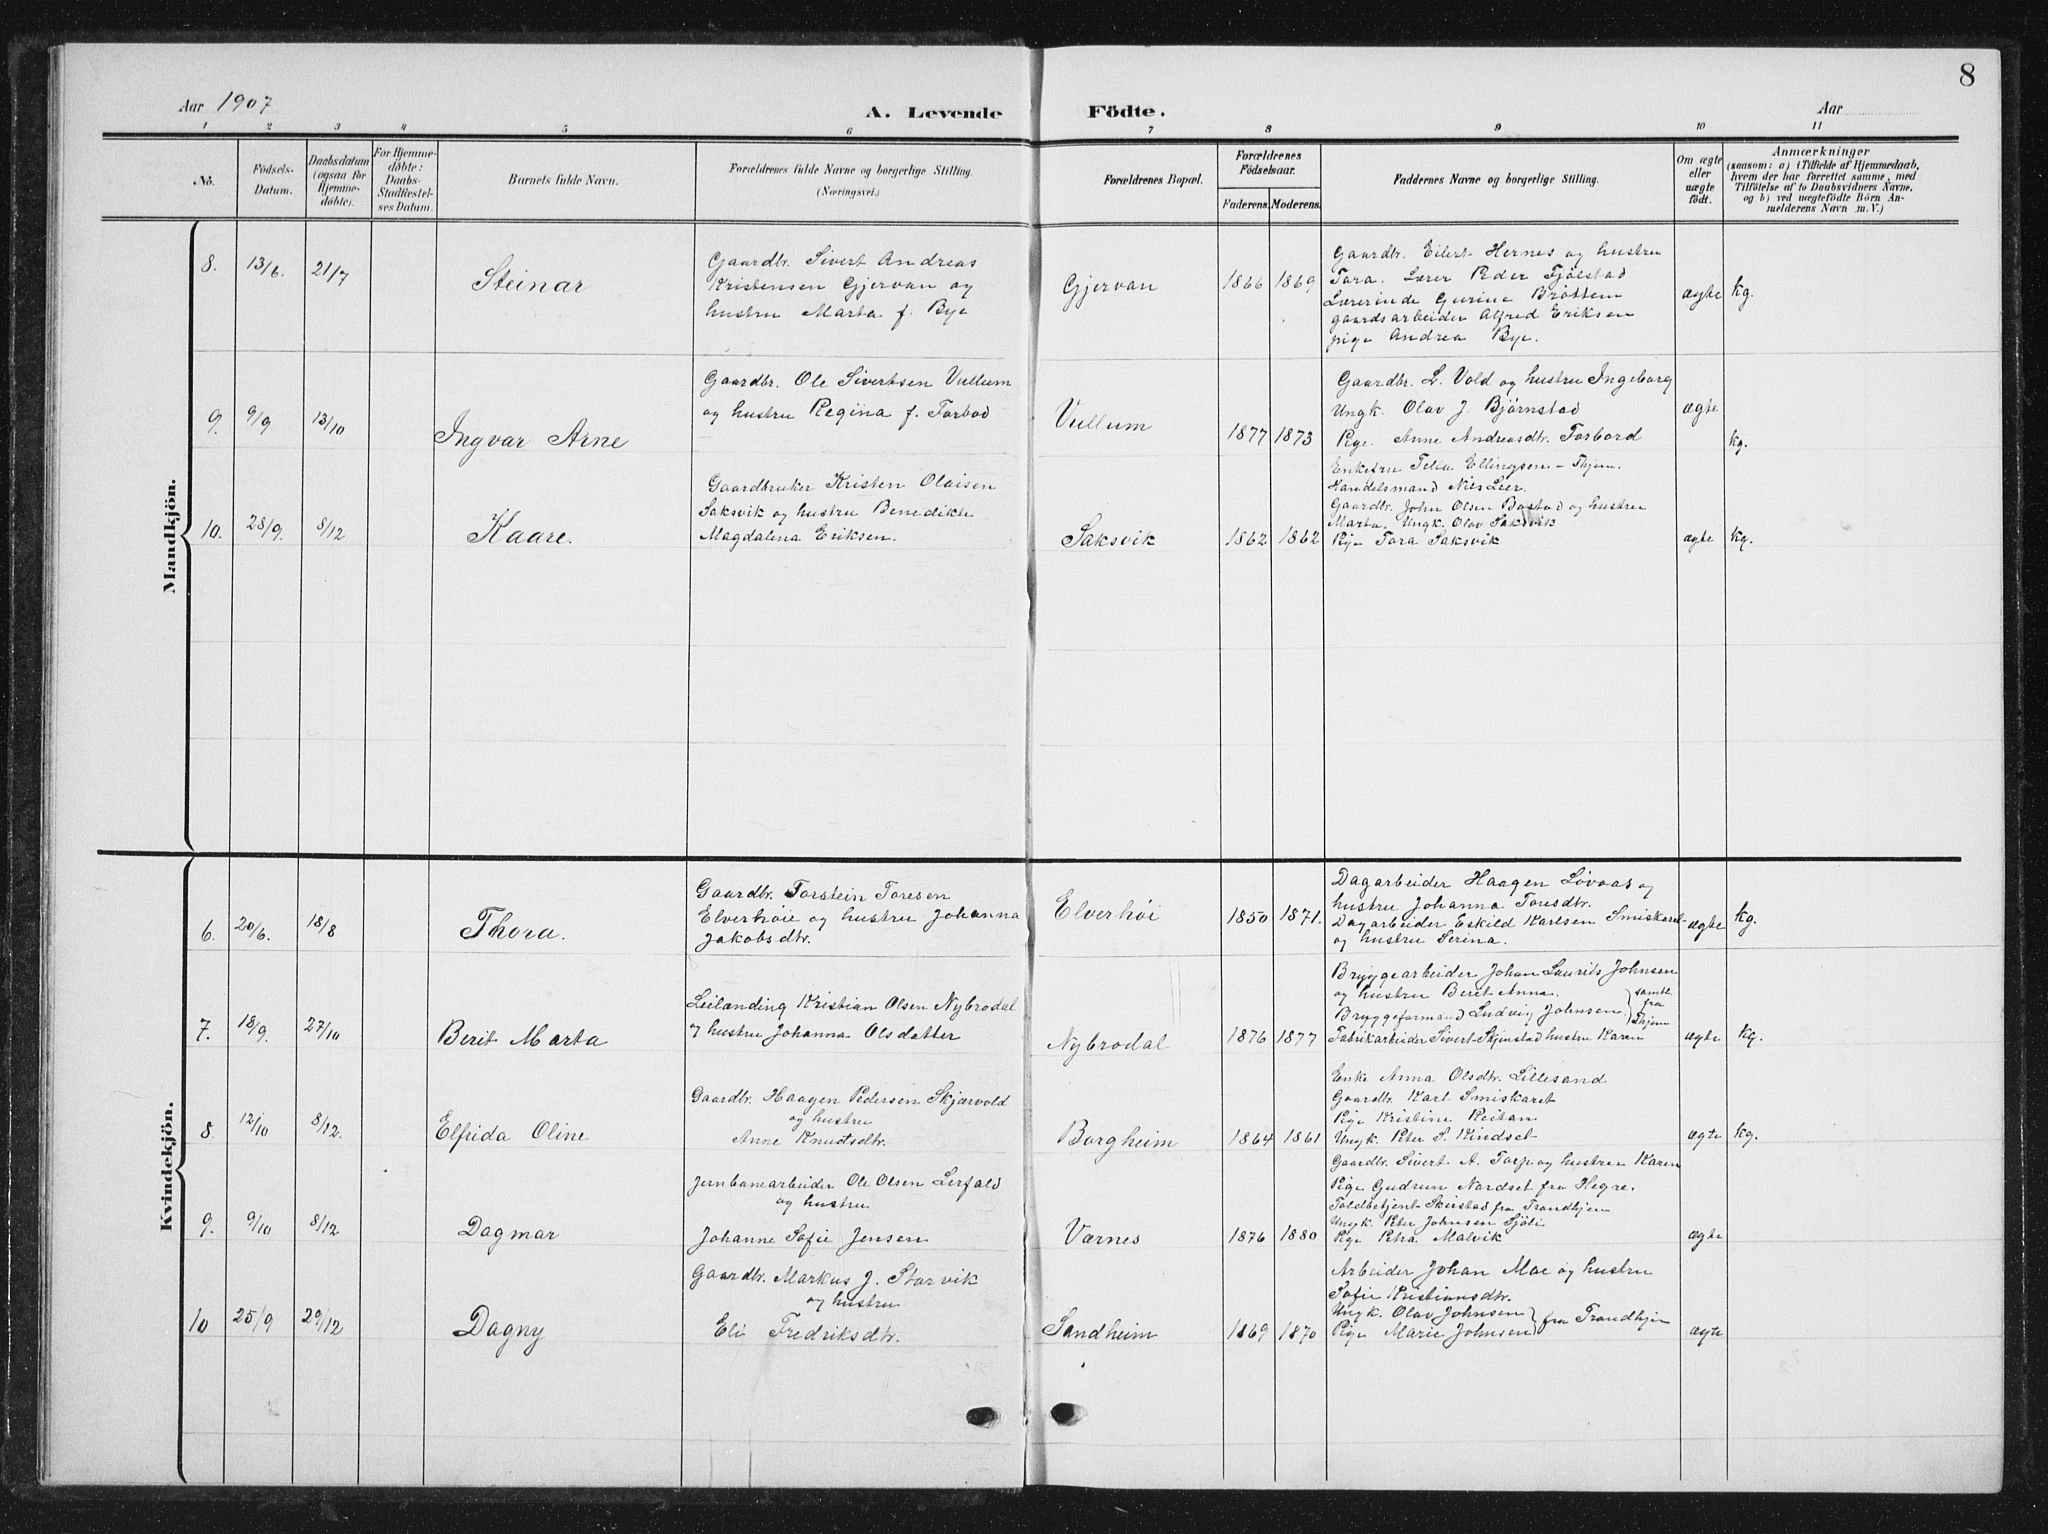 8
Aar 1907
A. Levende Födte.
Aar
1 2 3 4 5 6 7 8 9 10 11
No.
Födsels-Datum.
Daabsdatum (ogsaa for Hjemme-döbte).
For Hjemme-döbte: Daabs-Stadfæstel-ses Datum.
Barnets fulde Navn.
Forældrenes fulde Navne og borgerlige Stilling.
(Næringsvei.)
Forældrenes Bopæl.
Forældrenes Födselsaar.
Faderens.
Moderens.
Faddernes Navne og borgerlige Stilling.
Om ægte eller uægte födt.
Anmærkninger
(saasom: a) i Tilfælde af Hjemmedaab,
hvem der har forrettet samme, med
Tilföielse af to Daabsvidners Navne,
og b) ved uægtefödte Börn An-
melderens Navn m. V.)
Mandkjön.
8. 13/6. 21/7
Steinar
Gaardbr. Sivert Andreas
Kristensen Gjervan og
hustru Marta f. Bye
Gjervan
1866 1869
Gaardbr. Eilert Hernes og hustru
Tora. Lærer Peder Fjølstad
Lærerinde Gurine Bröttem
gaardsarbeider Alfred Eriksen
pige Andrea Bye.
ægte kg.
9. 9/9 13/10
Ingvar Arne
Gaardbr. Ole Sivertsen Vullum
og hustru Regina f. Forbod
Vullum
1877 1873
Gaardbr. L. Vold og hustru Ingeborg
Ungk. Olav J. Björnstad
Pige Anne Andreasdtr. Forbord
ægte
kg.
10. 28/9. 8/12
Kaare.
Gaardbruker Kristen Olaisen
Saksvik og hustru Benedikte
Magdalena Eriksen.
Saksvik
1862 1862
Enkefru Ellingsen - Thjem.
Handelsmand Nils Leer.
Gaardbr. John Olsen Bostad og hustru
Marta. Ungk. Olav Saksvik
Pige Tora Saksvik
ægte kg.
Kvindekjön.
6. 20/6. 18/8
Thora.
Gaardbr. Torstein Toresen
Elverhöie og hustru Johanna
Jakobsdtr.
Elverhöi
1850 1871.
Dagarbeider Haagen Lövaas og
hustru Johanna Toresdtr.
Dagarbeider Eskild Karlsen Smiskaret
og hustru Serina.
ægte kg.
7. 18/9. 27/10
Berit Marta
Leilænding Kristian Olsen Nybrodal
og hustru Johanna Olsdatter
Nybrodal
1876 1877
Bryggearbeider Johan Laurits Johnsen
og hustru Berit Anna.
Bryggeformand Ludvig Johnsen
samtl. fra Thjem
Fabrikarbeider Sivert Skjenstad hustru Karen
ægte kg.
8. 12/10 8/12.
Elfrida Oline
Gaardbr. Haagen Pedersen Skjærvold
og hustru
Anne Knutsdtr.
Borgheim
1864 1861
Enke Anna Olsdtr. Lillesand
Gaardbr. Karl Smiskaret
Pige Kristine Reitan
Ungk. Peter S. Kindset
ægte kg.
9. 9/10 8/12
Dagmar
Jernbanearbeider Ole Olsen Lerfald
og hustru
Johanne Sofie Jensen
Værnes
1876 1880
Gaardbr. Sivert A. Torp og hustru Karen
Pige Gudrun Nordset fra Hegre.
Toldbetjent Skirstad fra Trondhjem
Ungk. Peter Johnsen Sjöli
Pige Petra Malvik
ægte
10 25/9 29/12
Dagny
Gaardbr. Markus J. Storvik
og hustru
Eli Fredriksdtr.
Sandheim
1869 1870
Arbeider Johan Moe og hustru
Sofie Kristiansdtr.
Ungk. Olav Johnsen
Pige Marie Johnsen
fra Trondhjem
ægte